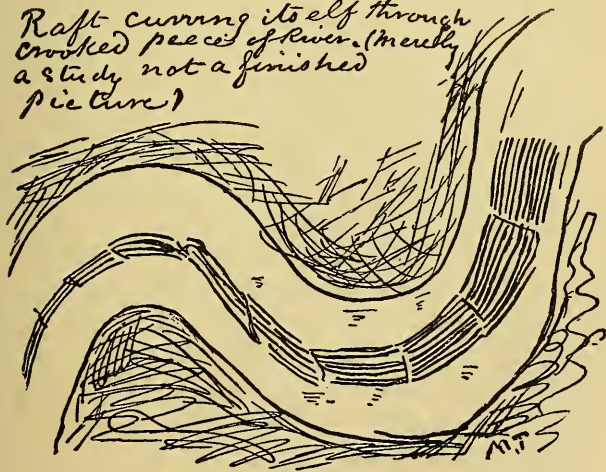 Raft curving itself through
crooked peece of River. (Merely
a study not a finished
picture)
M.T